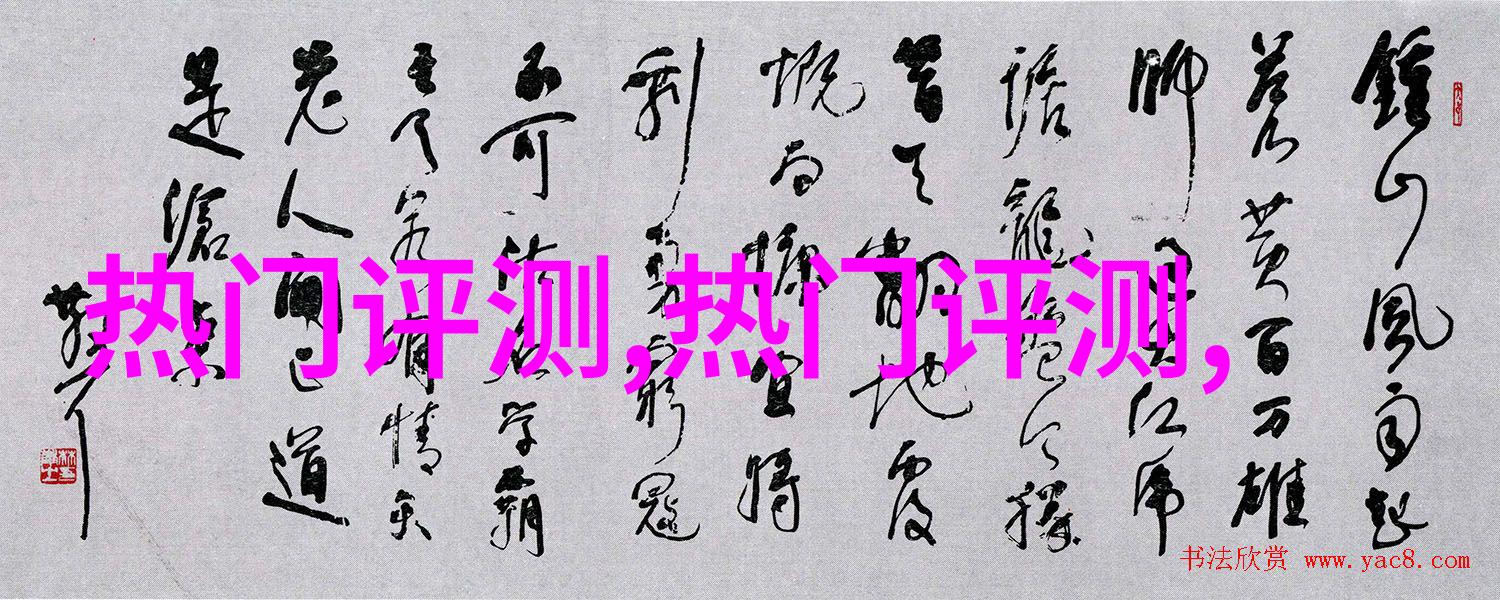 热门评测,热门评测,
鍾山風雨起
蒼黄百万雄
師過大江虎
踞龍盤今勝
昔天翻地覆
慨而慷宜将
剩勇追窮寇
不可沽名学霸
王天若有情天
老人間正道
是滄桑
书法欣赏 www.yac8.com